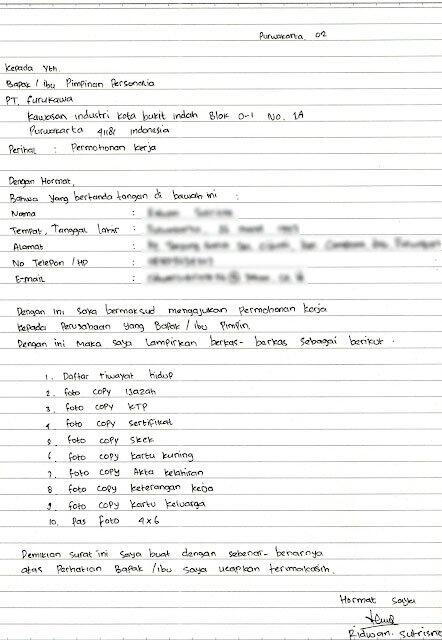 Purwakarta, 02
Kepada Yth.
Bapak / Ibu Pimpinan Personalia
PT. Furukawa
Kawasan industri kota bukit indah Blok D-1 No. 1A
Purwakarta 41181 Indonesia
Perihal : Permohonan kerja
Dengan Hormat,
Bahwa yang bertanda tangan di bawah ini :
Nama :
Tempat, Tanggal Lahir :
Alamat :
No Telepon / HP :
E-mail :
Dengan ini saya bermaksud mengajukan permohonan kerja
kepada Perusahaan yang Bapak / Ibu Pimpin.
Dengan ini Maka saya lampirkan berkas- berkas sebagai berikut .
1. Daftar riwayat hidup
2. foto copy Ijazah
3. foto copy KTP
4 foto copy sertifikat
5. foto copy skck
6 foto copy kartu kuning
7. foto copy Akta kelahiran
8 foto copy keterangan kerja
9. foto copy kartu keluarga
10. Pas foto 4x6
Demikian surat ini saya buat dengan sebenar- benarnya
atas Perhatian Bapak / Ibu saya ucapkan terimakasih.
Hormat saya
Ridwan. Sutrisna